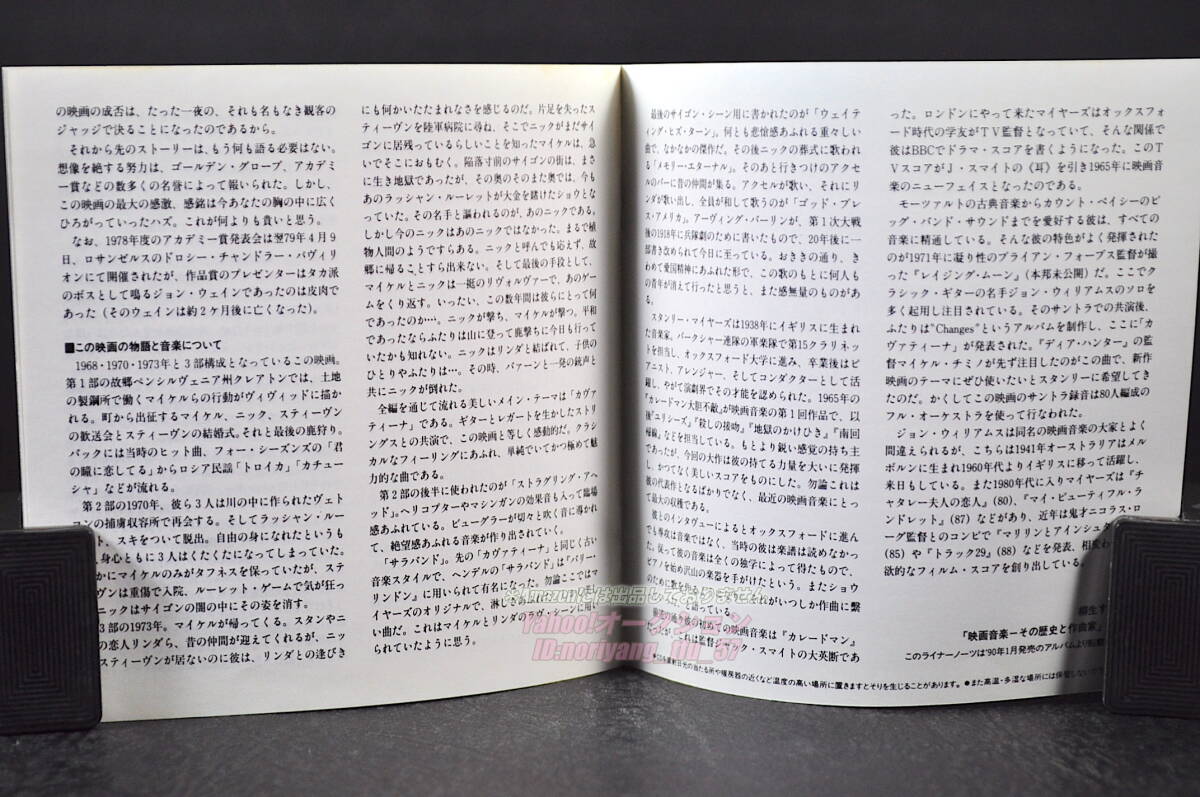 の映画の成否は、たった一夜の、それも名もなき観客の
ジャッジで決ることになったのであるから。
それから先のストーリーは、もう何も語る必要はない。
想像を絶する努力は、ゴールデン・グローブ、アカデミ
ー賞などの数多くの名誉によって報いられた。しかし、
この映画の最大の感激、感銘は今あなたの胸の中に広く
ひろがっていったハズ。これが何よりも貴いと思う。
なお、1978年度のアカデミー賞発表会は翌79年4月9
日、ロサンゼルスのドロシー・チャンドラー・パヴィリ
オンにて開催されたが、作品賞のプレゼンターはタカ派
のボスとして鳴るジョン・ウェインであったのは皮肉で
あった（そのウェインは約2ケ月後に亡くなった）。
■この映画の物語と音楽について
1968・1970・1973年と3部構成となっているこの映画。
第1部の故郷ペンシルヴェニア州クレアトンでは、土地
の製鋼所で働くマイケルらの行動がヴィヴィッドに描か
れる。町から出征するマイケル、ニック、スティーヴン
の歓送会とスティーヴンの結婚式。それと最後の鹿狩り。
バックには当時のヒット曲、フォー・シーズンズの「君
の瞳に恋してる」からロシア民謡「トロイカ」「カチュー
シャ」などが流れる。
第2部の1970年、彼ら3人は川の中に作られたヴェト
コンの捕虜収容所で再会する。そしてラッシャン・ルー
ト、スキをついて脱出。自由の身になれたというも
身心ともに3人はくたくたになってしまっていた。
かにマイケルのみがタフネスを保っていたが、ステ
ヴンは重傷で入院、ルーレット・ゲームで気が狂っ
ニックはサイゴンの闇の中にその姿を消す。
3部の1973年。マイケルが帰ってくる。スタンやニ
の恋人リンダら、昔の仲間が迎えてくれるが、ニッ
スティーヴンが居ないのに彼は、リンダとの逢びき
にも何かいたたまれなさを感じるのだ。片足を失ったス
ティーヴンを陸軍病院に尋ね、そこでニックがまだサイ
ゴンに居残っているらしいことを知ったマイケルは、急
いでそこにおもむく。陥落寸前のサイゴンの街は、まさ
に生き地獄であったが、その奥のそのまた奥では、今も
あのラッシャン・ルーレットが大金を賭けたショウとな
っていた。その名手と謳われるのが、あのニックである。
しかし今のニックはあのニックではなかった。まるで植
物人間のようですらある。ニックと呼んでも応えず、故
郷に帰ることすら出来ない。そして最後の手段として、
マイケルとニックは一挺のリヴォルヴァーで、あのゲー
ムをくり返す。いったい、この数年間は彼らにとって何
であったのか…。ニックが撃ち、マイケルが撃つ。平和
であったならふたりは山に登って鹿撃ちに今日も行って
いたかも知れない。ニックはリンダと結ばれて、子供の
ひとりやふたりは…。その時、バァーンと一発の銃声と
共にニックが倒れた。
全編を通じて流れる美しいメイン・テーマは「カヴァ
ティーナ」である。ギターとレガートを生かしたストリ
ングスとの共演で、この映画と等しく感動的だ。クラシ
カルなフィーリングにあふれ、単純でいてかつ極めて魅
力的な曲である。
第2部の後半に使われたのが「ストラグリング・アヘ
ッド」。ヘリコプターやマシンガンの効果音も入って臨場
感あふれている。ビューグラーが切々と吹く音に導かれ
て、絶望感あふれる音楽が作り出されていく。
「サラバンド」。先の「カヴァティーナ」と同じく古い
音楽スタイルで、ヘンデルの「サラバンド」は「バリー・
リンドン』に用いられて有名になった。勿論ここではマ
イヤーズのオリジナルで、淋し
い曲だ。これはマイケルとリンダのラヴ・シーンに用い
られていたように思う。
最後のサイゴン・シーン用に書かれたのが「ウェイテ
ィング・ヒズ・ターン」。何とも悲愴感あふれる重々しい
曲で、なかなかの傑作だ。その後ニックの葬式に歌われ
る「メモリー・エターナル」。そのあと行きつけのアクセ
ルのバーに昔の仲間が集る。アクセルが歌い、それにリ
ンダが歌い出し、全員が和して歌うのが「ゴッド・ブレ
ス・アメリカ」。アーヴィング・バーリンが、第1次大戦
後の1918年に兵隊劇のために書いたもので、20年後に一
部書き改められて今日に至っている。おきざりの通り、き
わめて愛国精神にあふれた形で、この歌のもとに何人も
の青年が消えて行ったと思うと、また感無量のものがあ
る。
スタンリー・マイヤーズは1938年にイギリスに生まれ
た音楽家。バークシャー連隊の軍楽隊で第15クラリネッ
トを担当し、オックスフォード大学に進み、卒業後はピ
アニスト、アレンジャー、そしてコンダクターとして活
躍し、やがて演劇界でその才能を認められた。1965年の
『カレードマン大胆不敵』が映画音楽の第1回作品で、以
後『ユリシーズ』『殺しの接吻』『地獄のかけひき』『南回
帰線』などを担当している。もとより鋭い感覚の持ち主
であったが、今回の大作は彼の持てる力量を大いに発揮
し、かつてなく美しいスコアをものにした。勿論これは
彼の代表作となるばかりでなく、最近の映画音楽にとっ
て最大の収穫である。
彼とのインタヴューによるとオックスフォードに進ん
でも専攻は音楽ではなく、当時の彼は楽譜は読めなかっ
た。従って彼の音楽は全くの独学によって得たもので、
ピアノを始め沢山の楽器を手がけたという。またショウ
のために歌を作
と語っている。
の初めての映画音楽は『カレードマン』
だが、これは監督ジャック・スマイトの大英断であ
った。ロンドンにやって来たマイヤーズはオックスフォ
ード時代の学友がTV監督となっていて、そんな関係で
彼はBBCでドラマ・スコアを書くようになった。このT
VスコアがJ・スマイトの《耳》を引き1965年に映画音
楽のニューフェイスとなったのである。
モーツァルトの古典音楽からカウント・ベイシーのビ
ッグ・バンド・サウンドまでを愛好する彼は、すべての
音楽に精通している。そんな彼の特色がよく発揮された
のが1971年に凝り性のブライアン・フォーブス監督が撮
った『レイジング・ムーン』（本邦未公開）だ。ここでク
ラシック・ギターの名手ジョン・ウィリアムスのソロを
多く起用し注目されている。そのサントラでの共演後、
ふたりは"Changes"というアルバムを制作し、ここに「カ
ヴァティーナ」が発表された。『ディア・ハンター』の監
督マイケル・チミノが先ず注目したのがこの曲で、新作
映画のテーマにぜひ使いたいとスタンリーに希望してき
たのだ。かくしてこの映画のサントラ録音は80人編成の
フル・オーケストラを使って行なわれた。
ジョン・ウィリアムスは同名の映画音楽の大家とよく
間違えられるが、こちらは1941年オーストラリアはメル
ボルンに生まれ1960年代よりイギリスに移って活躍し、
来日もしている。また1980年代に入りマイヤーズは『チ
ャタレー夫人の恋人』(80)、『マイ・ビューティフル・ラ
ンドレット』(87)などがあり、近年は鬼才ニコラス・ロ
ーグ監督とのコンビで『マリリンとアインシュタ
(85)や『トラック29』(88)などを発表、相変わ
欲的なフィルム・スコアを創り出している。
柳生す
「映画音楽ーその歴史と作曲家」
このライナーノーツは'90年1月発売のアルバムより転載
直射日光の当たる所や暖房器の近くなど温度の高い場所に置きますとそりを生じることがあります。●また高温・多湿な場所には保管しないで
※Amazonには出品しておりません
Yahoo!オークション
ID:noriyang_fu_57